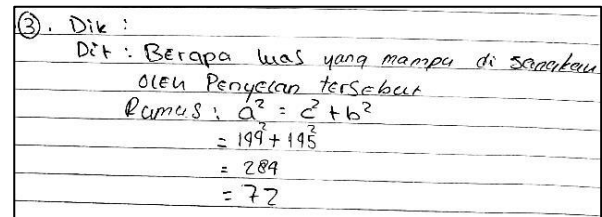 ③. Dik :
Dit : Berapa luas yang mampu di jangkau
oleh Penyelam tersebut
Rumus : a² = c² + b²
= 144² + 145²
= 289
= 72